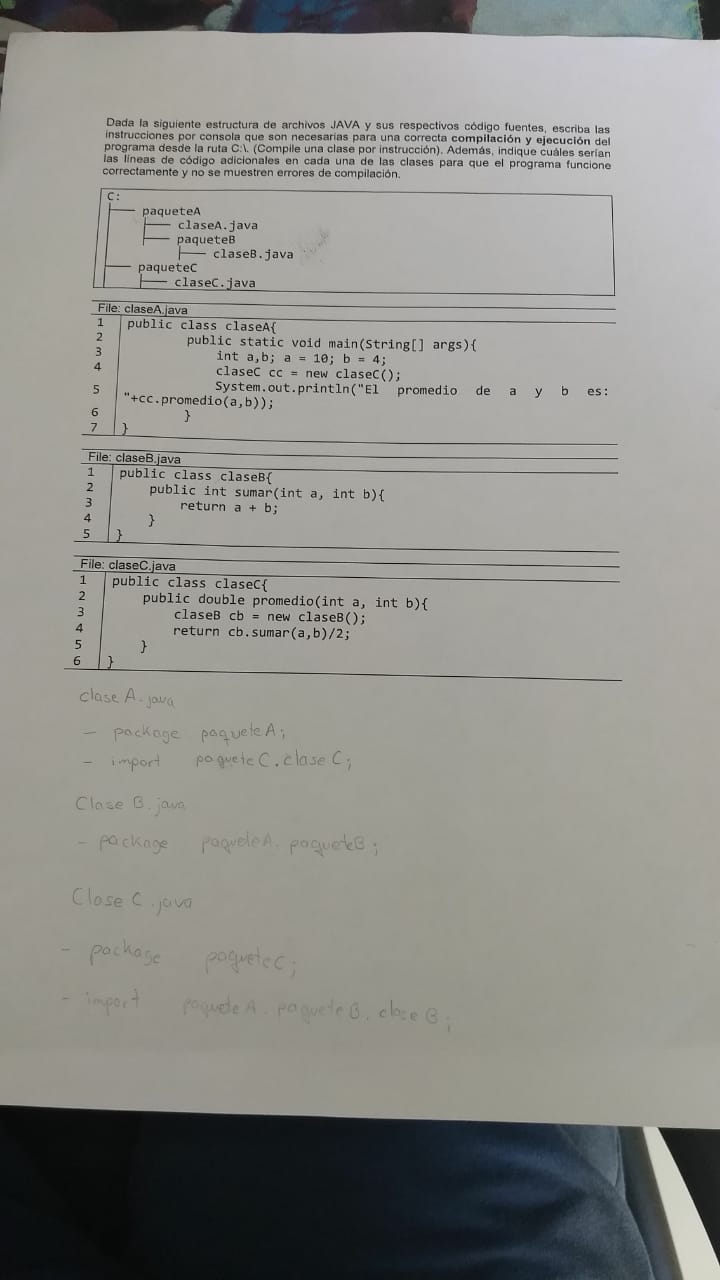 Dada la siguiente estructura de archivos JAVA y sus respectivos código fuentes, escriba las
instrucciones por consola que son necesarias para una correcta compilación y ejecución del
programa desde la ruta C:\. (Compile una clase por instrucción). Además, indique cuáles serían
las líneas de código adicionales en cada una de las clases para que el programa funcione
correctamente y no se muestren errores de compilación.
C:
paqueteA
claseA.java
paqueteB
claseB.java
paqueteC
claseC.java
File: claseA.java
1 public class claseA{
2 public static void main(String[] args){
3 int a,b; a = 10; b = 4;
4 claseC cc = new claseC();
5 System.out.println("El promedio de a y b es:
"+cc.promedio(a,b));
6 }
7 }
File: claseB.java
1 public class claseB{
2 public int sumar(int a, int b){
3 return a + b;
4 }
5 }
File: claseC.java
1 public class claseC{
2 public double promedio(int a, int b){
3 claseB cb = new claseB();
4 return cb.sumar(a,b)/2;
5 }
6 }
clase A.java
- package paqueteA;
- import paqueteC.claseC;
Clase B.java
- package paqueteA.paqueteB;
Clase C.java
- package paqueteC;
- import paqueteA.paqueteB.claseB;